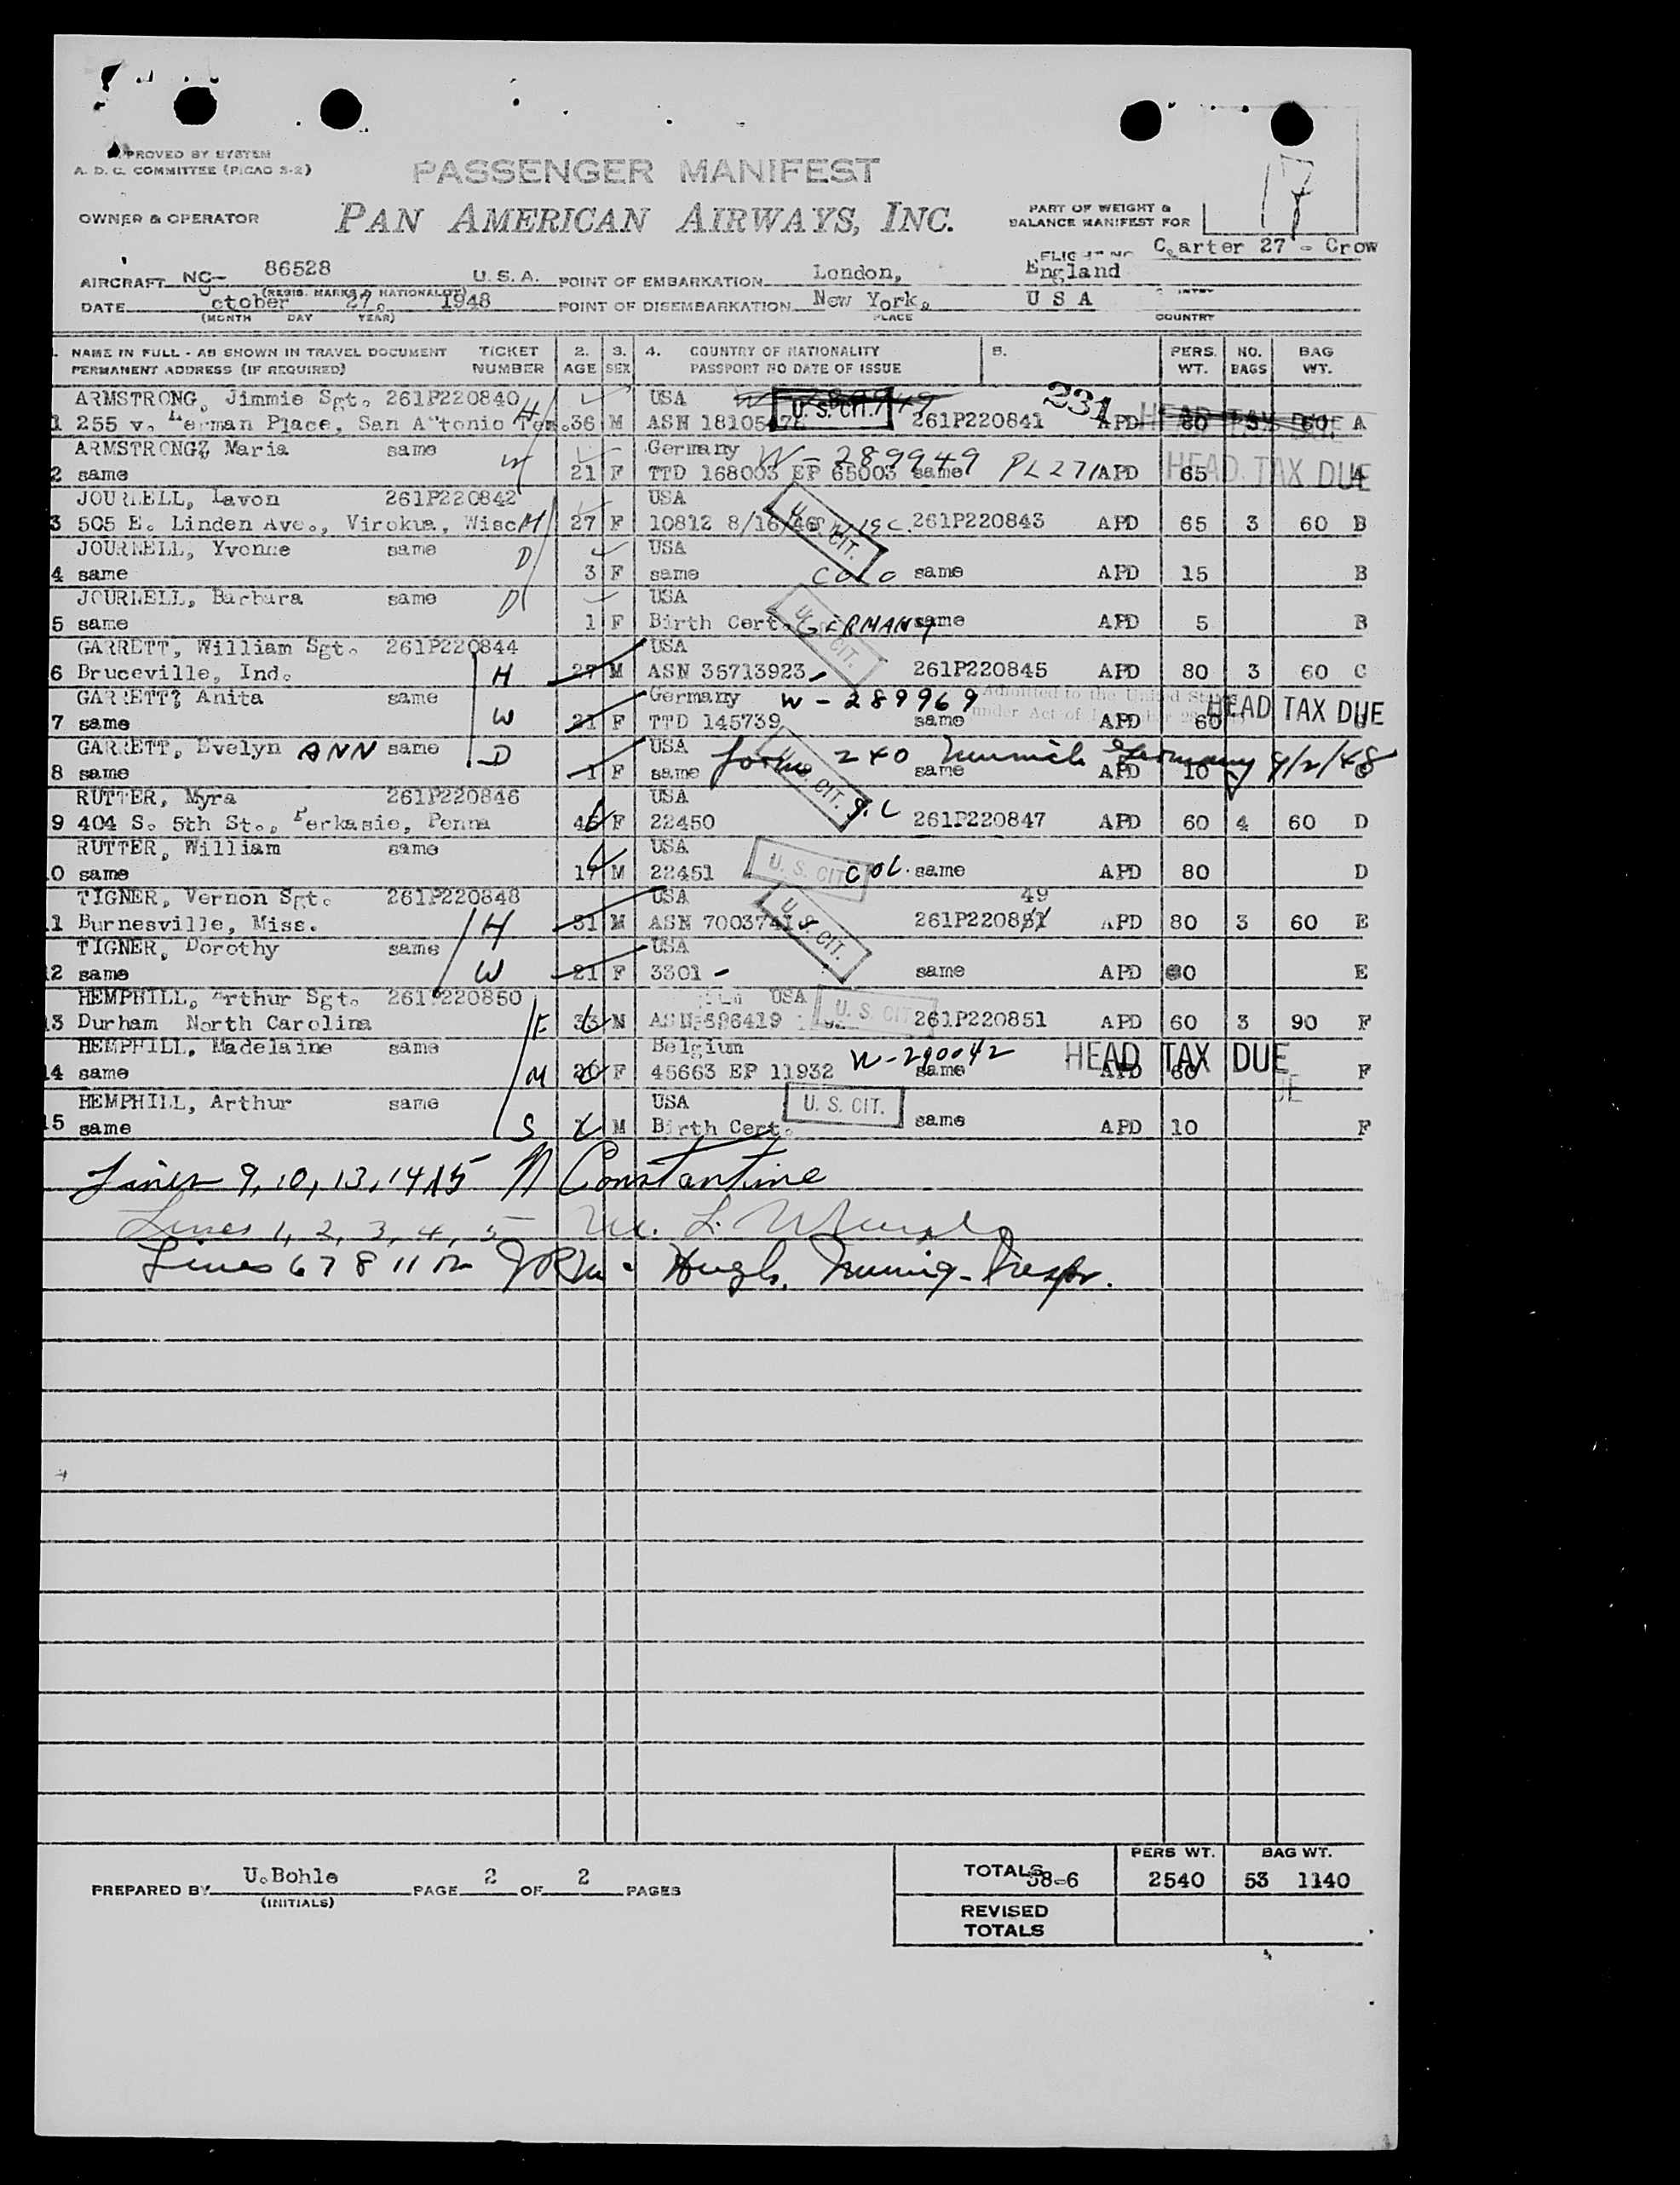 APPROVED BY SYSTEM
A. D. C. COMMITTEE (PICAO S-2)
PASSENGER MANIFEST
17
OWNER & OPERATOR
PAN AMERICAN AIRWAYS, INC.
PART OF WEIGHT &
BALANCE MANIFEST FOR
FLIGHT NO Carter 27 - Crow
AIRCRAFT NC- 86528 U.S.A. POINT OF EMBARKATION London, England
(REGIS. MARKS & NATIONALITY)
DATE October 27, 1948 POINT OF DISEMBARKATION New York, U S A
(MONTH DAY YEAR) PLACE COUNTRY
NAME IN FULL - AS SHOWN IN TRAVEL DOCUMENT TICKET 2. 3. 4. COUNTRY OF NATIONALITY 5. PERS. NO. BAG
PERMANENT ADDRESS (IF REQUIRED) NUMBER AGE SEX PASSPORT NO DATE OF ISSUE WT. BAGS WT.
ARMSTRONG, Jimmie Sgt. 261P220840 USA U. S. CIT. 231 HEAD TAX DUE
1 255 v. Herman Place, San Antonio Tex. H 36 M ASN 18105 261P220841 APD 80 3 60 A
ARMSTRONGZ Maria same Germany W-289949 PL 271 HEAD TAX DUE
2 same W 21 F TTD 168003 EP 65003 same APD 65 A
JOURNELL, Lavon 261P220842 USA
3 505 E. Linden Ave., Virokua, Wisc M 27 F 10812 8/16/46 WISC. U. S. CIT. 261P220843 APD 65 3 60 B
JOURNELL, Yvonne same USA
4 same D 3 F same COLO same APD 15 B
JOURNELL, Barbara same USA
5 same D 1 F Birth Cert. GERMANY U. S. CIT. same APD 5 B
GARRETT, William Sgt. 261P220844 USA
6 Bruceville, Ind. H 27 M ASN 35713923 261P220845 APD 80 3 60 C
GARRETT? Anita same Germany W-289969 Admitted to the United St HEAD TAX DUE
7 same W 21 F TTD 145739 same under Act of APD 60 C
GARRETT, Evelyn ANN same USA 240 Munich Germany 9/2/48
8 same D 1 F same U. S. CIT. same APD 10 C
RUTTER, Myra 261P220846 USA
9 404 S. 5th St., Perkasie, Penna 45 F 22450 261P220847 APD 60 4 60 D
RUTTER, William same USA
10 same 17 M 22451 U. S. CIT. COL. same APD 80 D
TIGNER, Vernon Sgt. 261P220848 USA 49
11 Burnesville, Miss. H 31 M ASN 7003741 U. S. CIT. 261P220851 APD 80 3 60 E
TIGNER, Dorothy same USA
12 same W 21 F 3301 - same APD 60 E
HEMPHILL, Arthur Sgt. 261P220850 USA
13 Durham North Carolina F 33 M ASN 696419 U. S. CIT 261P220851 APD 60 3 90 F
HEMPHILL, Madelaine same Belgium W-290042 HEAD TAX DUE
14 same M 20 F 45663 EP 11932 same APD 60 F
HEMPHILL, Arthur same USA U. S. CIT.
15 same S M Birth Cert. same APD 10 F
Lines 9, 10, 13, 14, 15 N Constantine
Lines 1, 2, 3, 4, 5 M. L.
Lines 6 7 8 11 12 Hugh, Immig. Inspr.
PREPARED BY U.Bohle PAGE 2 OF 2 PAGES
(INITIALS)
PERS WT. BAG WT.
TOTALS 38-6 2540 53 1140
REVISED
TOTALS